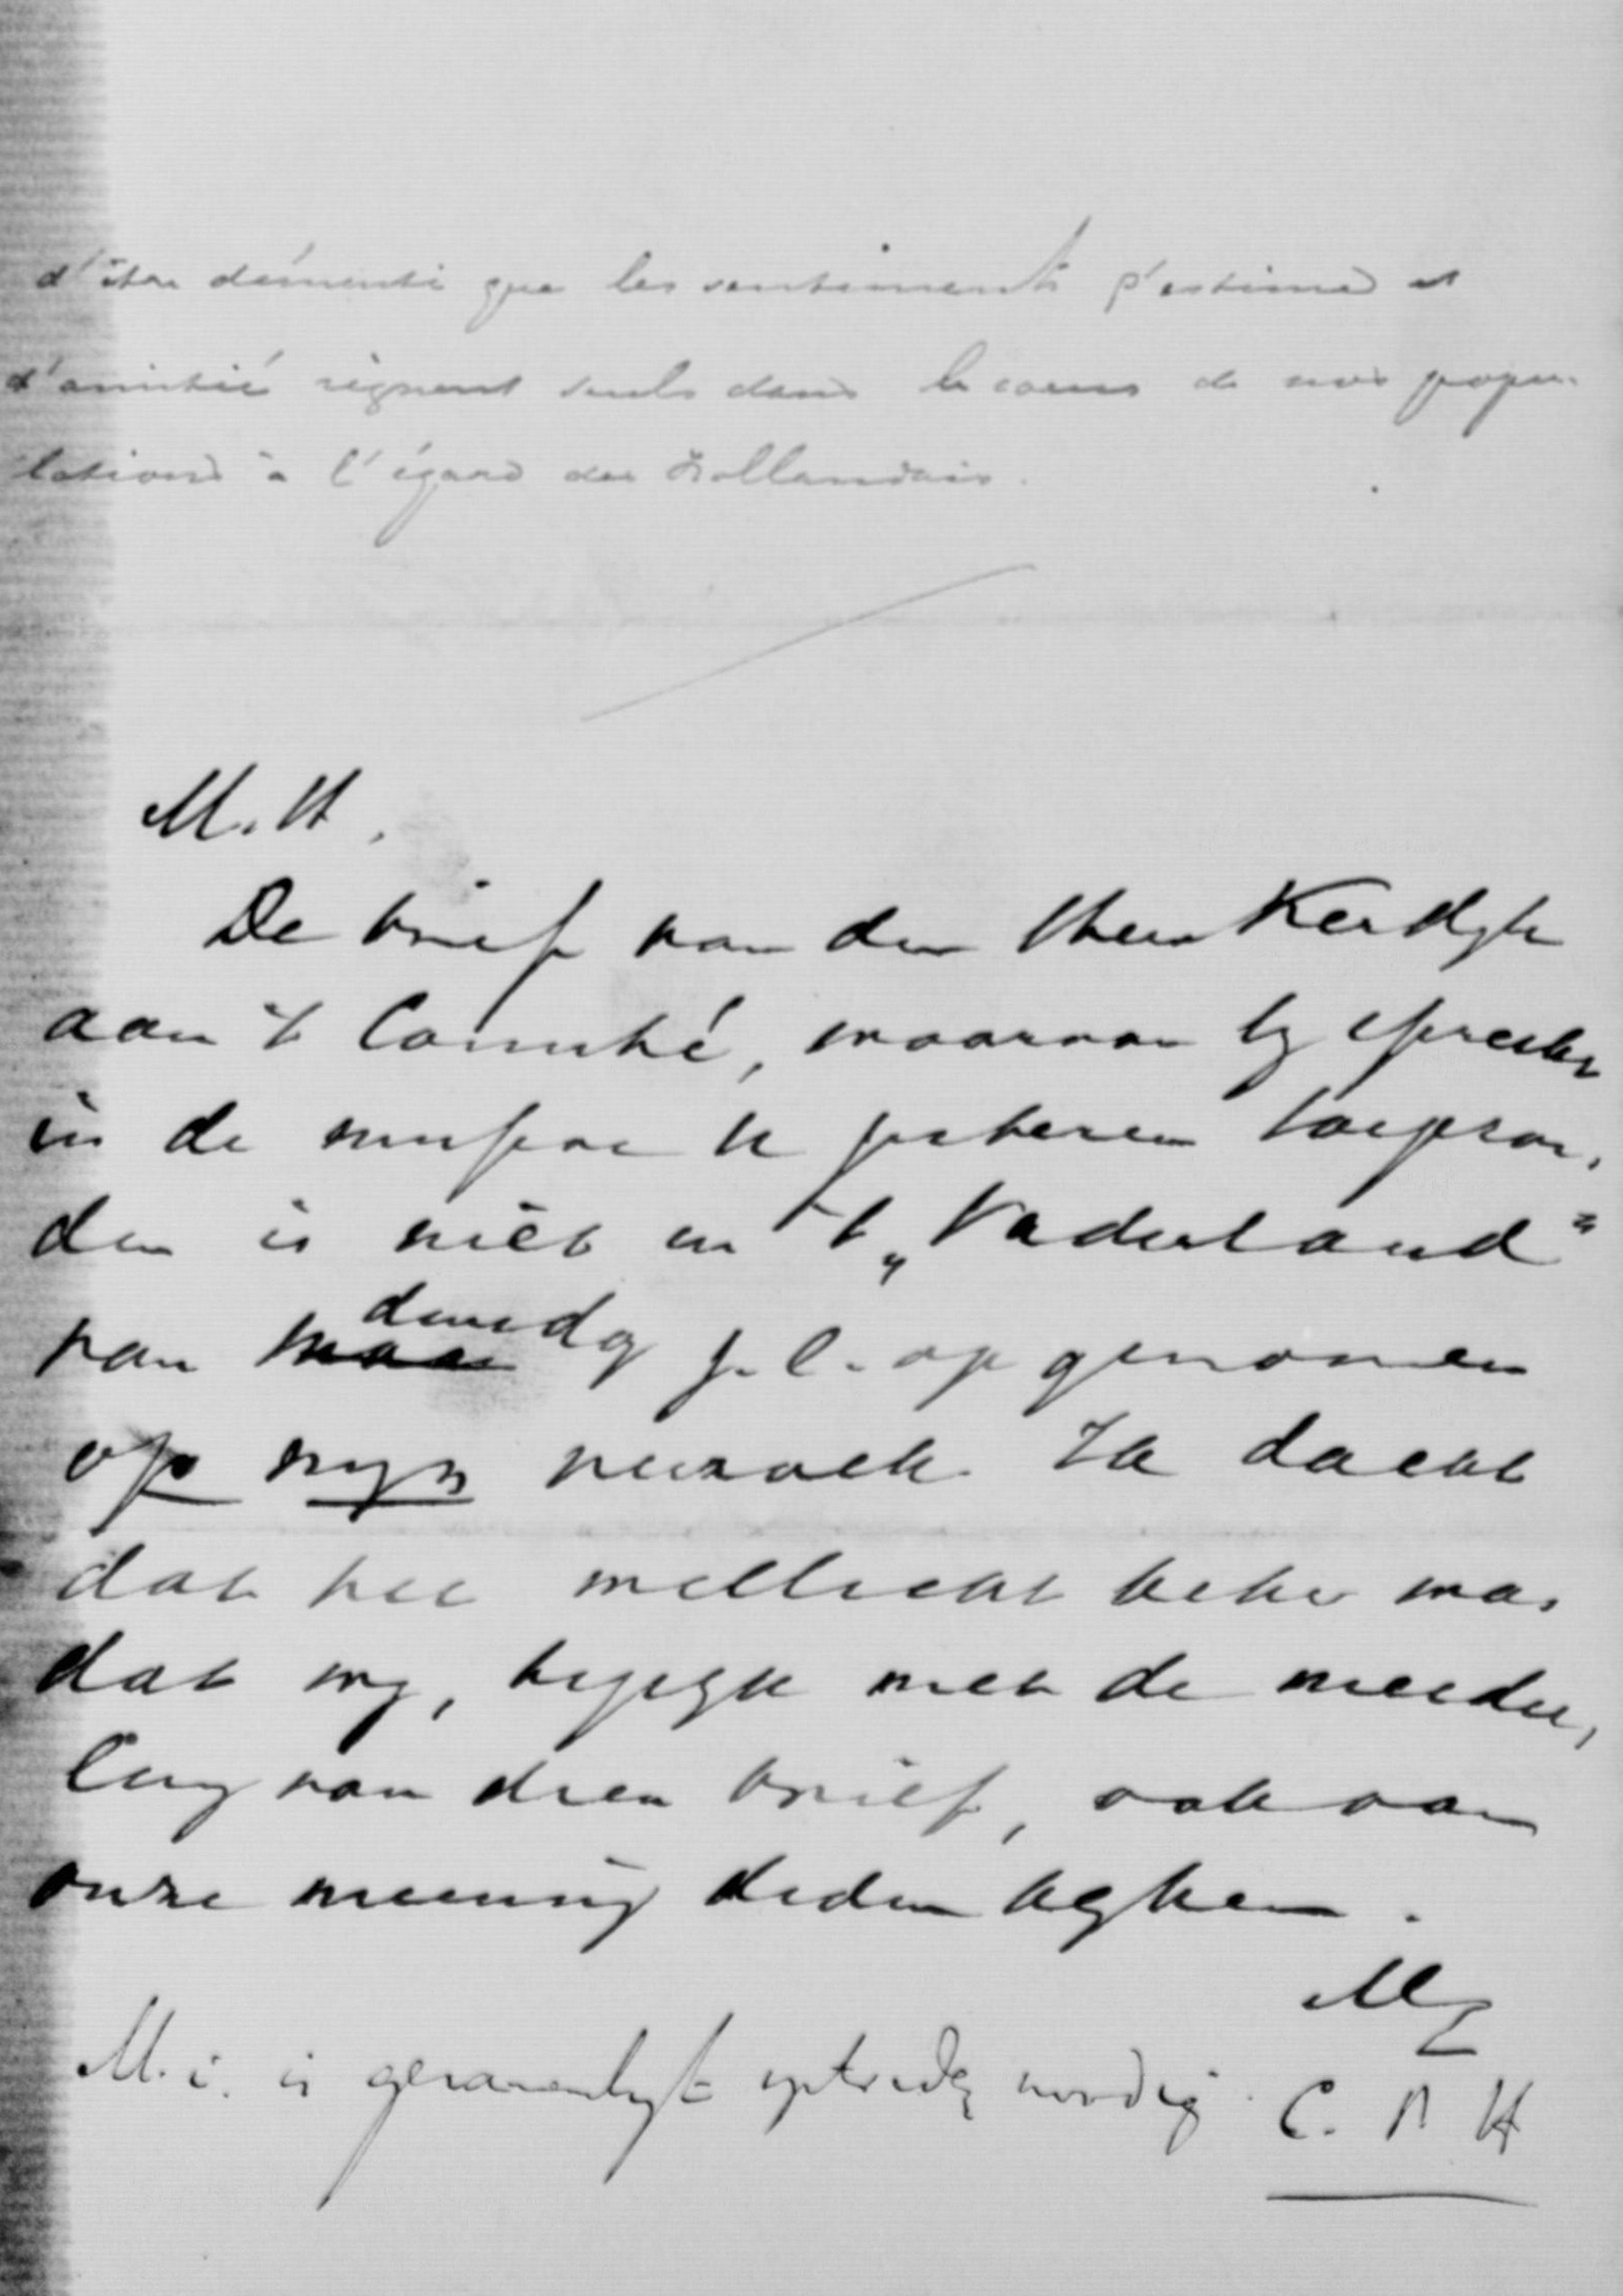 d'être démenti que les sentiments d'estime et
d'amitié règnent seuls dans le coeur de nos popu-
lations à l'égard des Hollandais.
M. H.
De brief van den Heer Kerdijk
aan 't Comité, waarvan hij spreekt
in de missive U gisteren toegezon-
den is niet in 't „Vaderland"
van maan dinsdag j.l. opgenomen
op mijn verzoek. Ik dacht
dat het wellicht beter was
dat wij, tegelijk met de meedee-
ling van dien brief, ook van
onze meening deden blijken.
M. i. is gezamenlijk optreden noodig.
C. P. H